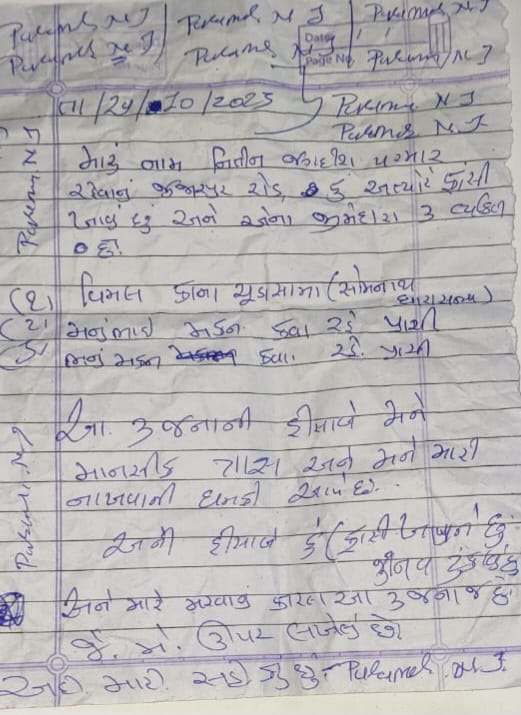 Parmar N J | Parmar N J | Parmar N J
Parmar N J. Parmar N J Parmar N J
Date
Page No
તા/24/10/2025 Parmar N J
Parmar N. J
મારૂ નામ નિતીન જગદીશ પરમાર
રહેવાનું રોડ, હું અત્યારે ફાંસી
ખાવ છું અને એના જીમેદારા ૩ વ્યકિત
છે.
(૧) વિમલ કાના ચૂડાસામા (સોમનાથ
ધારાસભ્ય)
(૨) મનુભાઇ મકન કવા રહે પ્રાચી
(૩) ભનુ મકન કવા. રહે. પ્રાચી
આ. ૩ જનાની હીસાબે મને
માનસીક ત્રાસ અને મને મારી
નાખવાની ધમકી આપે છે..
એની હીસાબે હું (ફાસી ખાવ છું
જીનવ ટુંકાવું છું
અને મારે મરવાનું કારણ આ ૩ જના જ છે.
જે મેં ઊપર લખેલું છે.
મારી સહી કરૂ છું:- Parmar .N.J.
Parmar N J
Parmar. N J